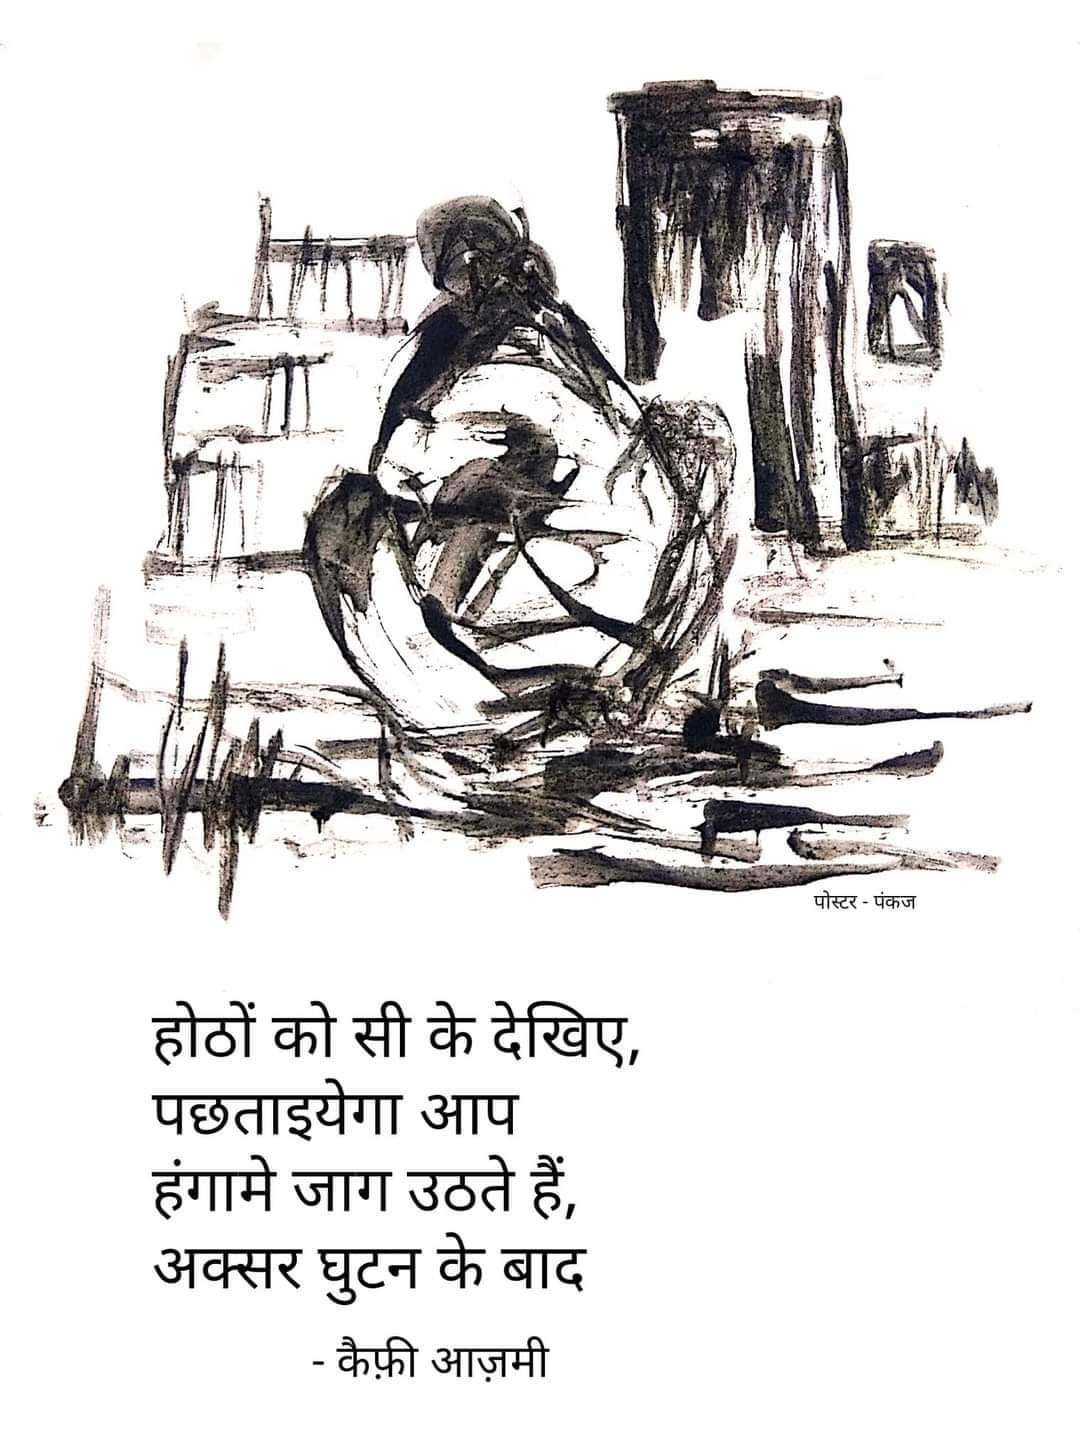 पोस्टर - पंकज
होठों को सी के देखिए,
पछताइयेगा आप
हंगामे जाग उठते हैं,
अक्सर घुटन के बाद
- कैफ़ी आज़मी